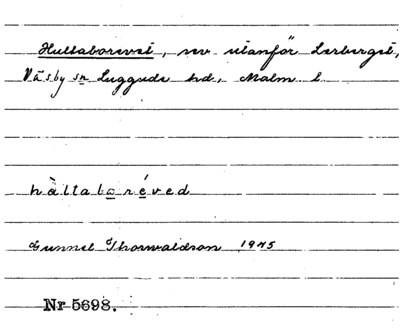 Hultaborevet, rev utanför Lerberget,
Väsby sn Luggude hd, Malm. l.
hàltaboréved
Gunnel Thorwaldson 1945
Nr 5698.